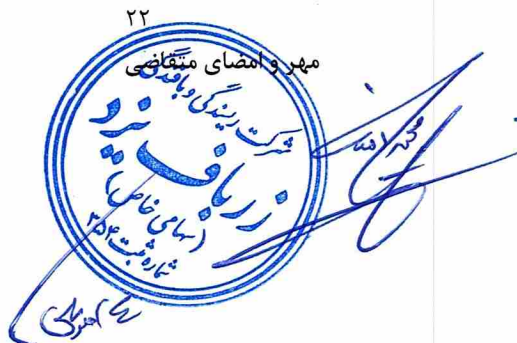 ۲۲
مهر و امضای متقاضی
شرکت ریسندگی و بافندگی
زرباف یزد
(سهامی خاص)
شماره ثبت ۳۵۴